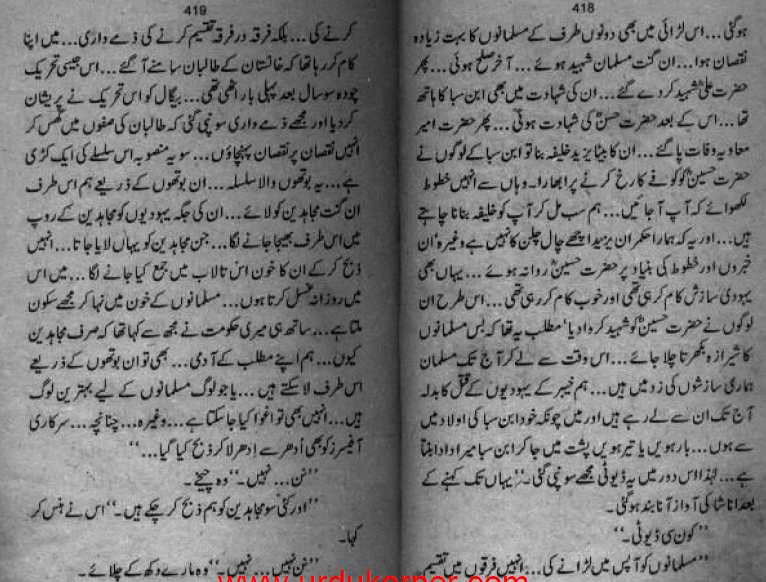 418
ہو گئی... اس لڑائی میں بھی دونوں طرف کے مسلمانوں کا بہت زیادہ
نقصان ہوا... ان گنت مسلمان شہید ہوئے... آخر صلح ہوئی... پھر
حضرت علیؓ شہید کر دیے گئے... ان کی شہادت میں بھی ابن سبا کا ہاتھ
تھا... اس کے بعد حضرت حسنؓ کی شہادت ہوئی... پھر حضرت امیر
معاویہ وفات پا گئے... ان کا بیٹا یزید خلیفہ بنا تو ابن سبا کے لوگوں نے
حضرت حسینؓ کو کوفے کا رخ کرنے پر ابھارا۔ وہاں سے انہیں خطوط
لکھوائے کہ آپ آ جائیں... ہم سب مل کر آپ کو خلیفہ بنانا چاہتے
ہیں... اور یہ کہ ہمارا حکمران یزید اچھے چال چلن کا نہیں ہے وغیرہ' ان
خبروں اور خطوط کی بنیاد پر حضرت حسینؓ روانہ ہوئے... یہاں بھی
یہودی سازش کام کر رہی تھی اور خوب کام کر رہی تھی... اس طرح ان
لوگوں نے حضرت حسینؓ کو شہید کروا دیا' مطلب یہ تھا کہ بس مسلمانوں
کا شیرازہ بکھرتا چلا جائے... اس وقت سے لے کر آج تک مسلمان
ہماری سازشوں کی زد میں ہیں... ہم خیبر کے یہودیوں کے قتل کا بدلہ
آج تک ان سے لے رہے ہیں اور میں چونکہ خود ابن سبا کی اولاد میں
سے ہوں... بارہویں یا تیرہویں پشت میں جا کر ابن سبا میرا دادا بنتا
ہے... لہٰذا اس دور میں یہ ڈیوٹی مجھے سونپی گئی۔" یہاں تک کہنے کے
بعد اناشا کی آواز آنا بند ہو گئی۔
"کون سی ڈیوٹی۔"
"مسلمانوں کو آپس میں لڑانے کی... انہیں فرقوں میں تقسیم
419
کرنے کی... بلکہ فرقہ در فرقہ تقسیم کرنے کی ذمے داری... میں اپنا
کام کر رہا تھا کہ غانستان کے طالبان سامنے آ گئے... اس جیسی تحریک
چودہ سو سال بعد پہلی بار اٹھی تھی... بیگال کو اس تحریک نے پریشان
کر دیا اور مجھے ذمے داری سونپی گئی کہ طالبان کی صفوں میں گھس کر
انہیں نقصان پر نقصان پہنچاؤں... سو یہ منصوبہ اس سلسلے کی ایک کڑی
ہے... یہ بوتھوں والا سلسلہ... ان بوتھوں کے ذریعے ہم اس طرف
ان گنت مجاہدین کو لائے... ان کی جگہ یہودیوں کو مجاہدین کے روپ
میں اس طرف بھیجا جانے لگا... جن مجاہدین کو یہاں لایا جاتا... انہیں
ذبح کر کے ان کا خون اس تالاب میں جمع کیا جانے لگا... میں اس
میں روزانہ غسل کرتا ہوں... مسلمانوں کے خون میں نہا کر مجھے سکون
ملتا ہے... ساتھ ہی میری حکومت نے مجھ سے کہا تھا کہ صرف مجاہدین
کیوں... ہم اپنے مطلب کے آدمی... بھی تو ان بوتھوں کے ذریعے
اس طرف لا سکتے ہیں... یا جو لوگ مسلمانوں کے لیے بہترین لوگ
ہیں... انہیں بھی تو اغوا کیا جا سکتا ہے... وغیرہ... چنانچہ... سرکاری
آفیسرز کو بھی اُدھر سے اِدھر لا کر ذبح کیا گیا..."
"نن... نہیں۔" وہ چیخے۔
"اور کئی سو مجاہدین کو ہم ذبح کر چکے ہیں۔" اس نے ہنس کر
کہا۔
"نن نہیں... نہیں۔" وہ مارے دکھ کے چلائے۔
www.urdukorner.com